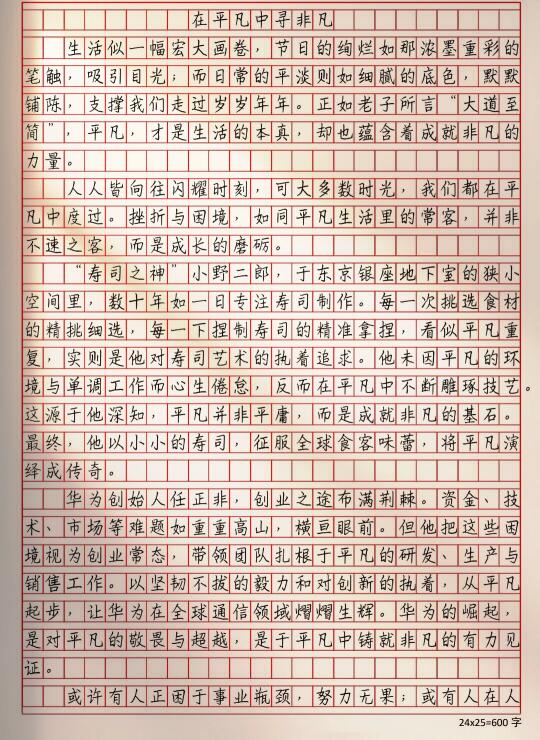 在平凡中寻非凡
生活似一幅宏大画卷，节日的绚烂如那浓墨重彩的
笔触，吸引目光；而日常的平淡则如细腻的底色，默默
铺陈，支撑我们走过岁岁年年。正如老子所言“大道至
简”，平凡，才是生活的本真，却也蕴含着成就非凡的
力量。
人人皆向往闪耀时刻，可大多数时光，我们都在平
凡中度过。挫折与困境，如同平凡生活里的常客，并非
不速之客，而是成长的磨砺。
“寿司之神”小野二郎，于东京银座地下室的狭小
空间里，数十年如一日专注寿司制作。每一次挑选食材
的精挑细选，每一下捏制寿司的精准拿捏，看似平凡重
复，实则是他对寿司艺术的执着追求。他未因平凡的环
境与单调工作而心生倦怠，反而在平凡中不断雕琢技艺。
这源于他深知，平凡并非平庸，而是成就非凡的基石。
最终，他以小小的寿司，征服全球食客味蕾，将平凡演
绎成传奇。
华为创始人任正非，创业之途布满荆棘。资金、技
术、市场等难题如重重高山，横亘眼前。但他把这些困
境视为创业常态，带领团队扎根于平凡的研发、生产与
销售工作。以坚韧不拔的毅力和对创新的执着，从平凡
起步，让华为在全球通信领域熠熠生辉。华为的崛起，
是对平凡的敬畏与超越，是于平凡中铸就非凡的有力见
证。
或许有人正困于事业瓶颈，努力无果；或有人在人
24x25=600 字